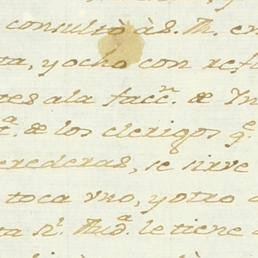 consultò à S. M. en
ta, y ocho con refle
tes a la facc.n de In
de los clerigos q.e
erederas, se sirve
toca vno, y otro
ta R.l Aud.a le tiene